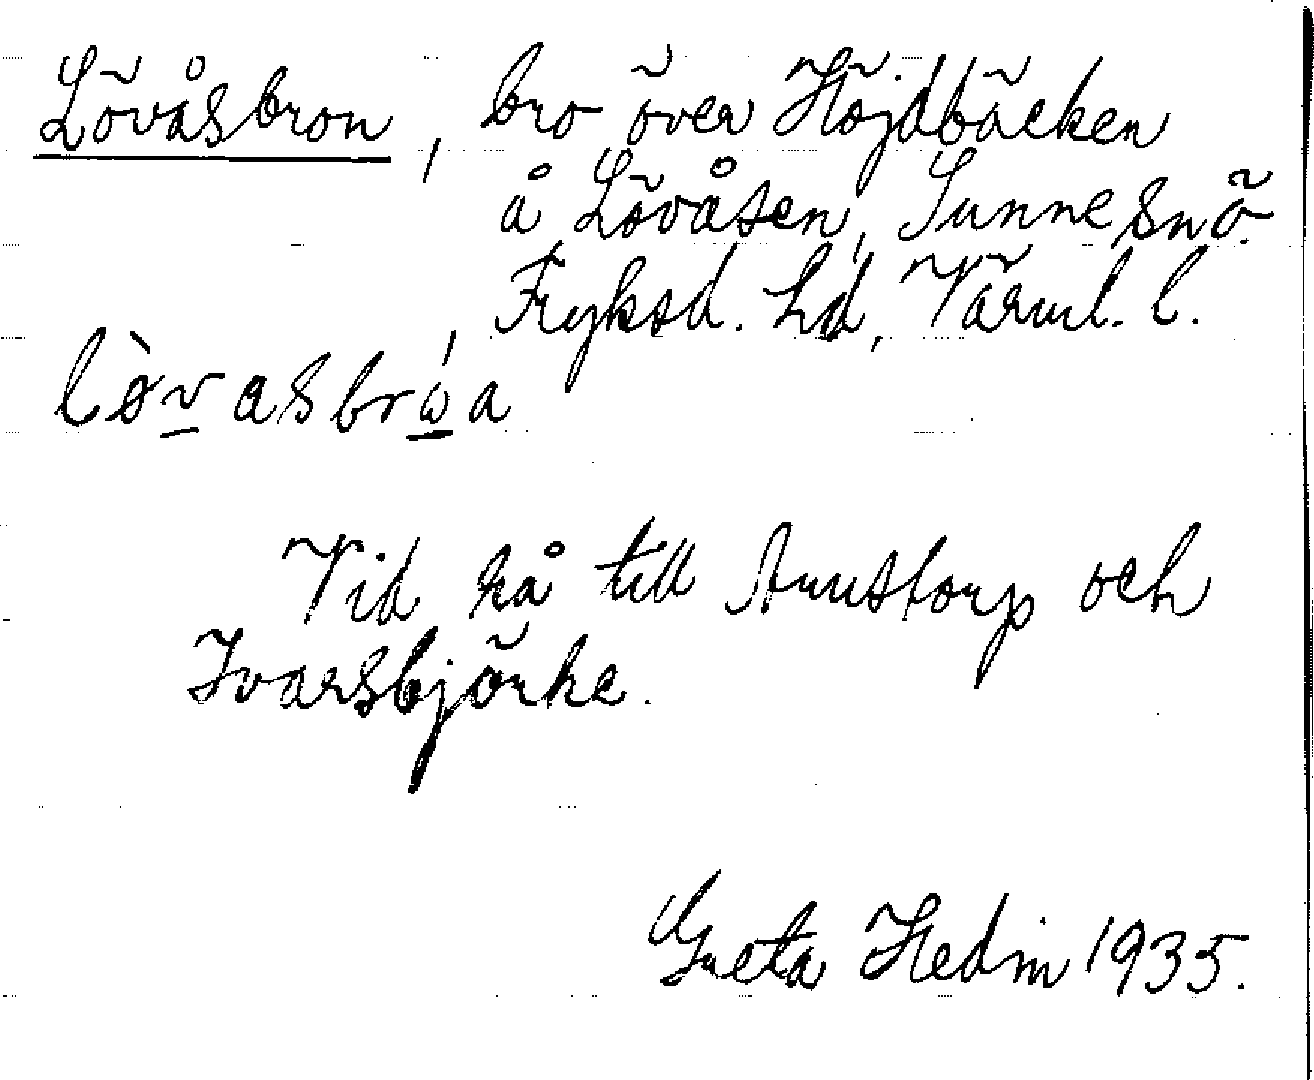 Lövåsbron, bro över Höjdbäcken
å Lövåsen, Sunne snö.
Fryksd. hd, Värml. l.
lòvasbróa
Vid rå till Amstorp och
Ivarsbjörke.
Greta Hedin 1935.